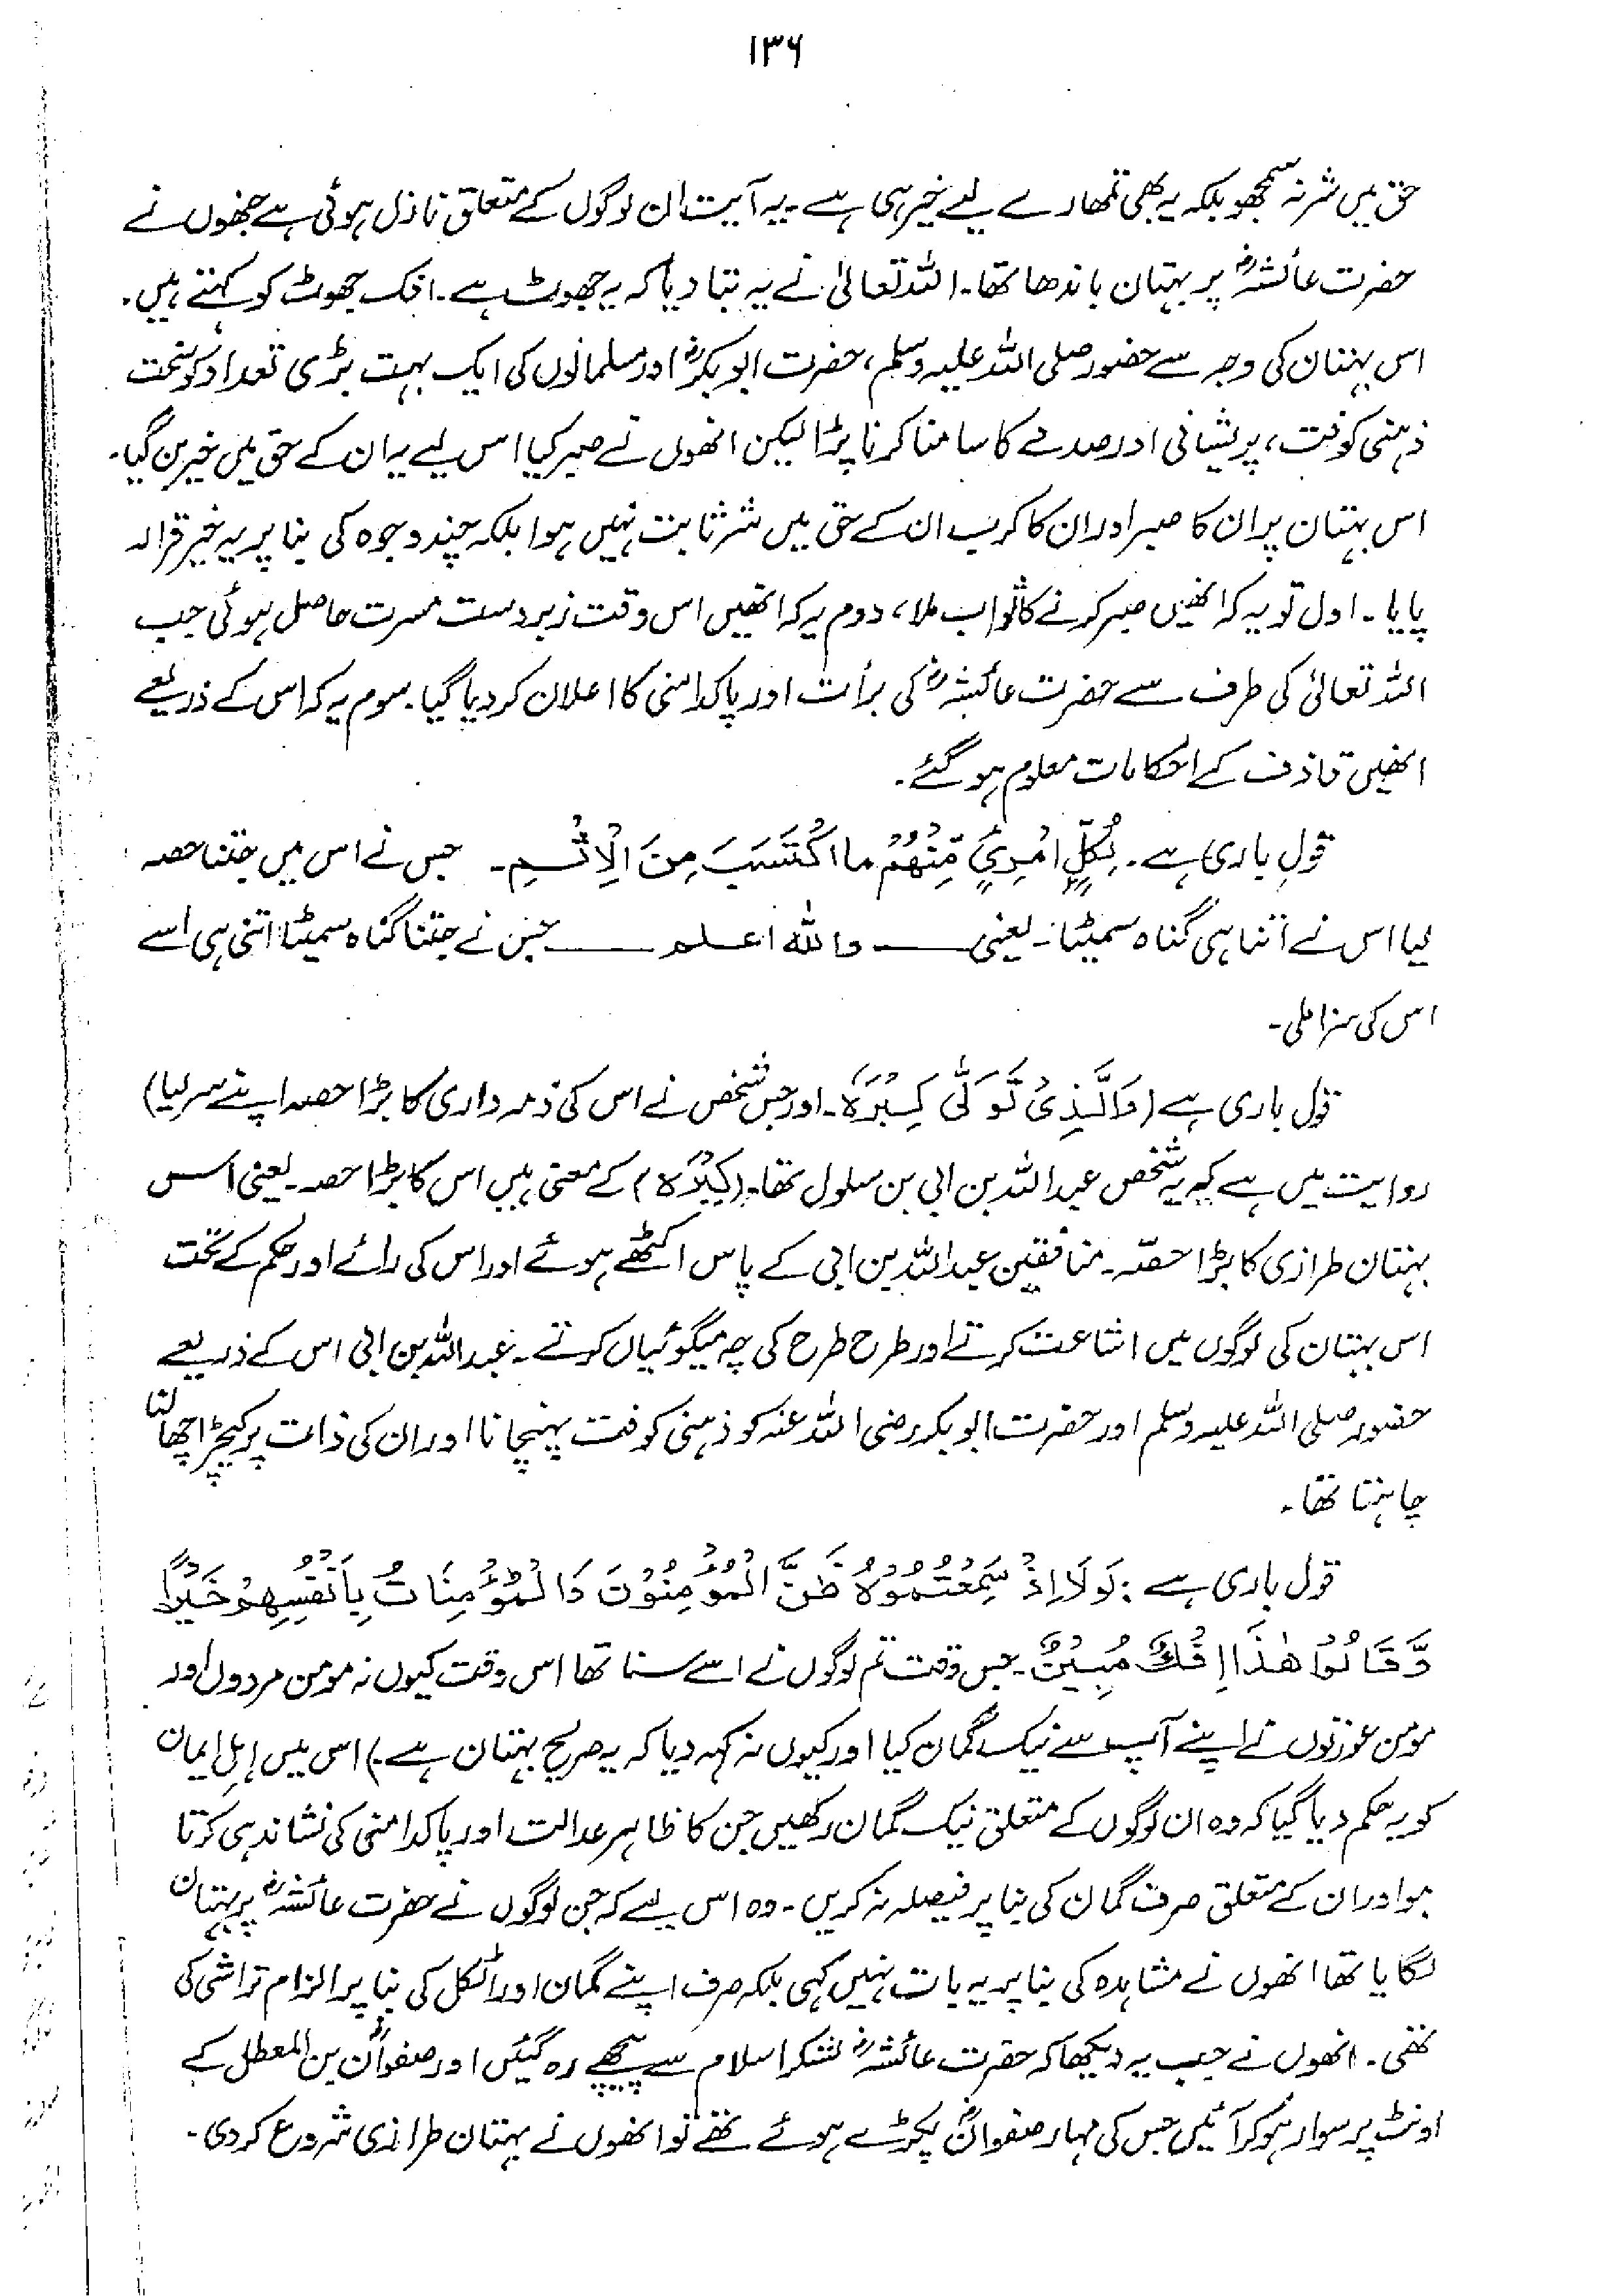 ۱۳۶
حق میں شر نہ سمجھو بلکہ یہ بھی تمھارے لیے خیر ہی ہے۔ یہ آیت ان لوگوں کے متعلق نازل ہوئی ہے جنھوں نے
حضرت عائشہؓ پر بہتان باندھا تھا۔ اللہ تعالیٰ نے یہ بتا دیا کہ یہ جھوٹ ہے۔ افک جھوٹ کو کہتے ہیں۔
اس بہتان کی وجہ سے حضور صلی اللہ علیہ وسلم، حضرت ابوبکرؓ اور مسلمانوں کی ایک بہت بڑی تعداد کو سخت
ذہنی کوفت، پریشانی اور صدمے کا سامنا کرنا پڑا لیکن انھوں نے صبر کیا اس لیے یہ ان کے حق میں خیر بن گیا۔
اس بہتان پر ان کا صبر اور ان کا کرب ان کے حق میں شر ثابت نہیں ہوا بلکہ چند وجوہ کی بنا پر یہ خیر قرار
پایا۔ اول تو یہ کہ انھیں صبر کرنے کا ثواب ملا، دوم یہ کہ انھیں اس وقت زبردست مسرت حاصل ہوئی جب
اللہ تعالیٰ کی طرف سے حضرت عائشہؓ کی برأت اور پاکدامنی کا اعلان کر دیا گیا۔ سوم یہ کہ اس کے ذریعے
انھیں قاذف کے احکامات معلوم ہو گئے۔
قولِ باری ہے۔ لِكُلِّ امْرِئٍ مِّنْهُمْ مَا اكْتَسَبَ مِنَ الْاِثْمِ۔ جس نے اس میں جتنا حصہ
لیا اس نے اتنا ہی گناہ سمیٹا۔ یعنی ــــ واللہ اعلم ــــ جس نے جتنا گناہ سمیٹا اتنی ہی اسے
اس کی سزا ملی۔
قول باری ہے (وَالَّذِیْ تَوَلّٰی کِبْرَہٗ۔ اور جس شخص نے اس کی ذمہ داری کا بڑا حصہ اپنے سر لیا)
روایت میں ہے کہ یہ شخص عبداللہ بن ابی بن سلول تھا۔ (کِبْرَہٗ) کے معنی ہیں اس کا بڑا حصہ۔ یعنی اس
بہتان طرازی کا بڑا حصّہ۔ منافقین عبداللہ بن ابی کے پاس اکٹھے ہوئے اور اس کی رائے اور حکم کے تحت
اس بہتان کی لوگوں میں اشاعت کرتے اور طرح طرح کی چہ میگوئیاں کرتے۔ عبداللہ بن ابی اس کے ذریعے
حضور صلی اللہ علیہ وسلم اور حضرت ابوبکر رضی اللہ عنہ کو ذہنی کوفت پہنچانا اور ان کی ذات پر کیچڑ اچھالنا
چاہتا تھا۔
قول باری ہے: لَوْلَا اِذْ سَمِعْتُمُوْهُ ظَنَّ الْمُؤْمِنُوْنَ وَالْمُؤْمِنَاتُ بِاَنْفُسِهِمْ خَيْرًا
وَّقَالُوْا هٰذَا اِفْكٌ مُّبِيْنٌ۔ جس وقت تم لوگوں نے اسے سنا تھا اس وقت کیوں نہ مومن مردوں اور
مومن عورتوں نے اپنے آپ سے نیک گمان کیا اور کیوں نہ کہہ دیا کہ یہ صریح بہتان ہے۔) اس میں اہلِ ایمان
کو یہ حکم دیا گیا کہ وہ ان لوگوں کے متعلق نیک گمان رکھیں جن کا ظاہر عدالت اور پاکدامنی کی نشاندہی کرتا
ہو اور ان کے متعلق صرف گمان کی بنا پر فیصلہ نہ کریں۔ وہ اس لیے کہ جن لوگوں نے حضرت عائشہؓ پر بہتان
لگایا تھا انھوں نے مشاہدہ کی بنا پر یہ بات نہیں کہی بلکہ صرف اپنے گمان اور اٹکل کی بنا پر الزام تراشی کی
تھی۔ انھوں نے جب یہ دیکھا کہ حضرت عائشہؓ لشکر اسلام سے پیچھے رہ گئیں اور صفوانؓ بن المعطل کے
اونٹ پر سوار ہو کر آئیں جس کی مہار صفوانؓ پکڑے ہوئے تھے تو انھوں نے بہتان طرازی شروع کر دی۔